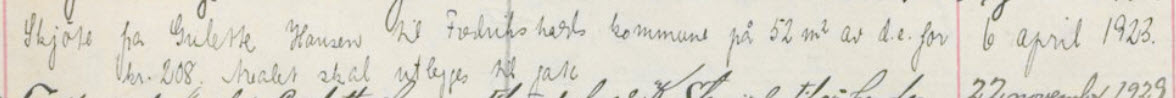 Skjøte fra Gulette Hansen til Fredrikshalds kommune på 52 m² av d.e. for 6 april 1923.
kr. 208. Arealet skal utlegges til gate
22 november 1929